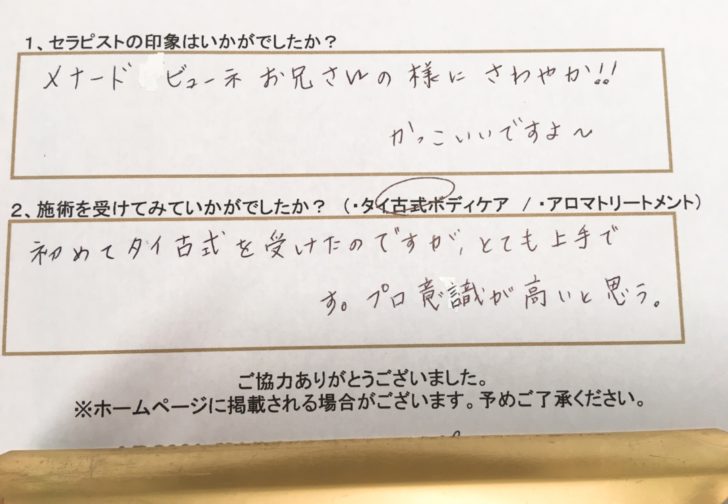 1、セラピストの印象はいかがでしたか？
メナード ビューネ お兄さんの様にさわやか!!
かっこいいですよ〜
2、施術を受けてみていかがでしたか？ （・タイ古式ボディケア / ・アロマトリートメント）
初めてタイ古式を受けたのですが、とても上手で
す。プロ意識が高いと思う。
ご協力ありがとうございました。
※ホームページに掲載される場合がございます。予めご了承ください。